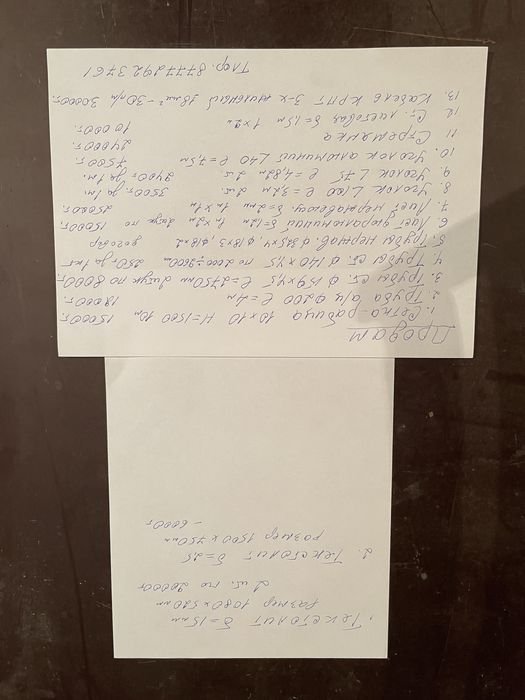 Продам
1. Сетка-рабица 10x10 H=1500 10м 15000т.
2. Труба а/ц ф200 l=4м 18000т.
3. Трубы ст. ф159x4,5 l=2750мм 2штук по 8000т.
4. Трубы ст. ф140x4,5 по 2000÷2600мм 250т. за 1кг.
5. Трубы нержав. ф18x3, ф18x2 договор
6. Лист дюралюминий δ=1,2мм 1x2м 2штук по 15000т.
7. Лист нержавеющ. δ=2мм 1мx1м 25000т.
8. Уголок L100 l=3,2м 2шт. 3500т. за 1м.
9. Уголок L75 l=4,82м 2шт. 2400т. за 1м.
10. Уголок алюминий L40 l=7,5м 7500т.
11 Стремянка 24000т.
12. Ст. листовая δ=1,5м 1x2м 10000т.
13. Кабель КРПТ 3-х жильный 30п/м 30000т.
Тлф. 87772923761
1. Текстолит δ=15мм
размер 1080x520мм
2шт. по 20000т
2. Текстолит δ=25
размер 1500x750мм
- 6000т